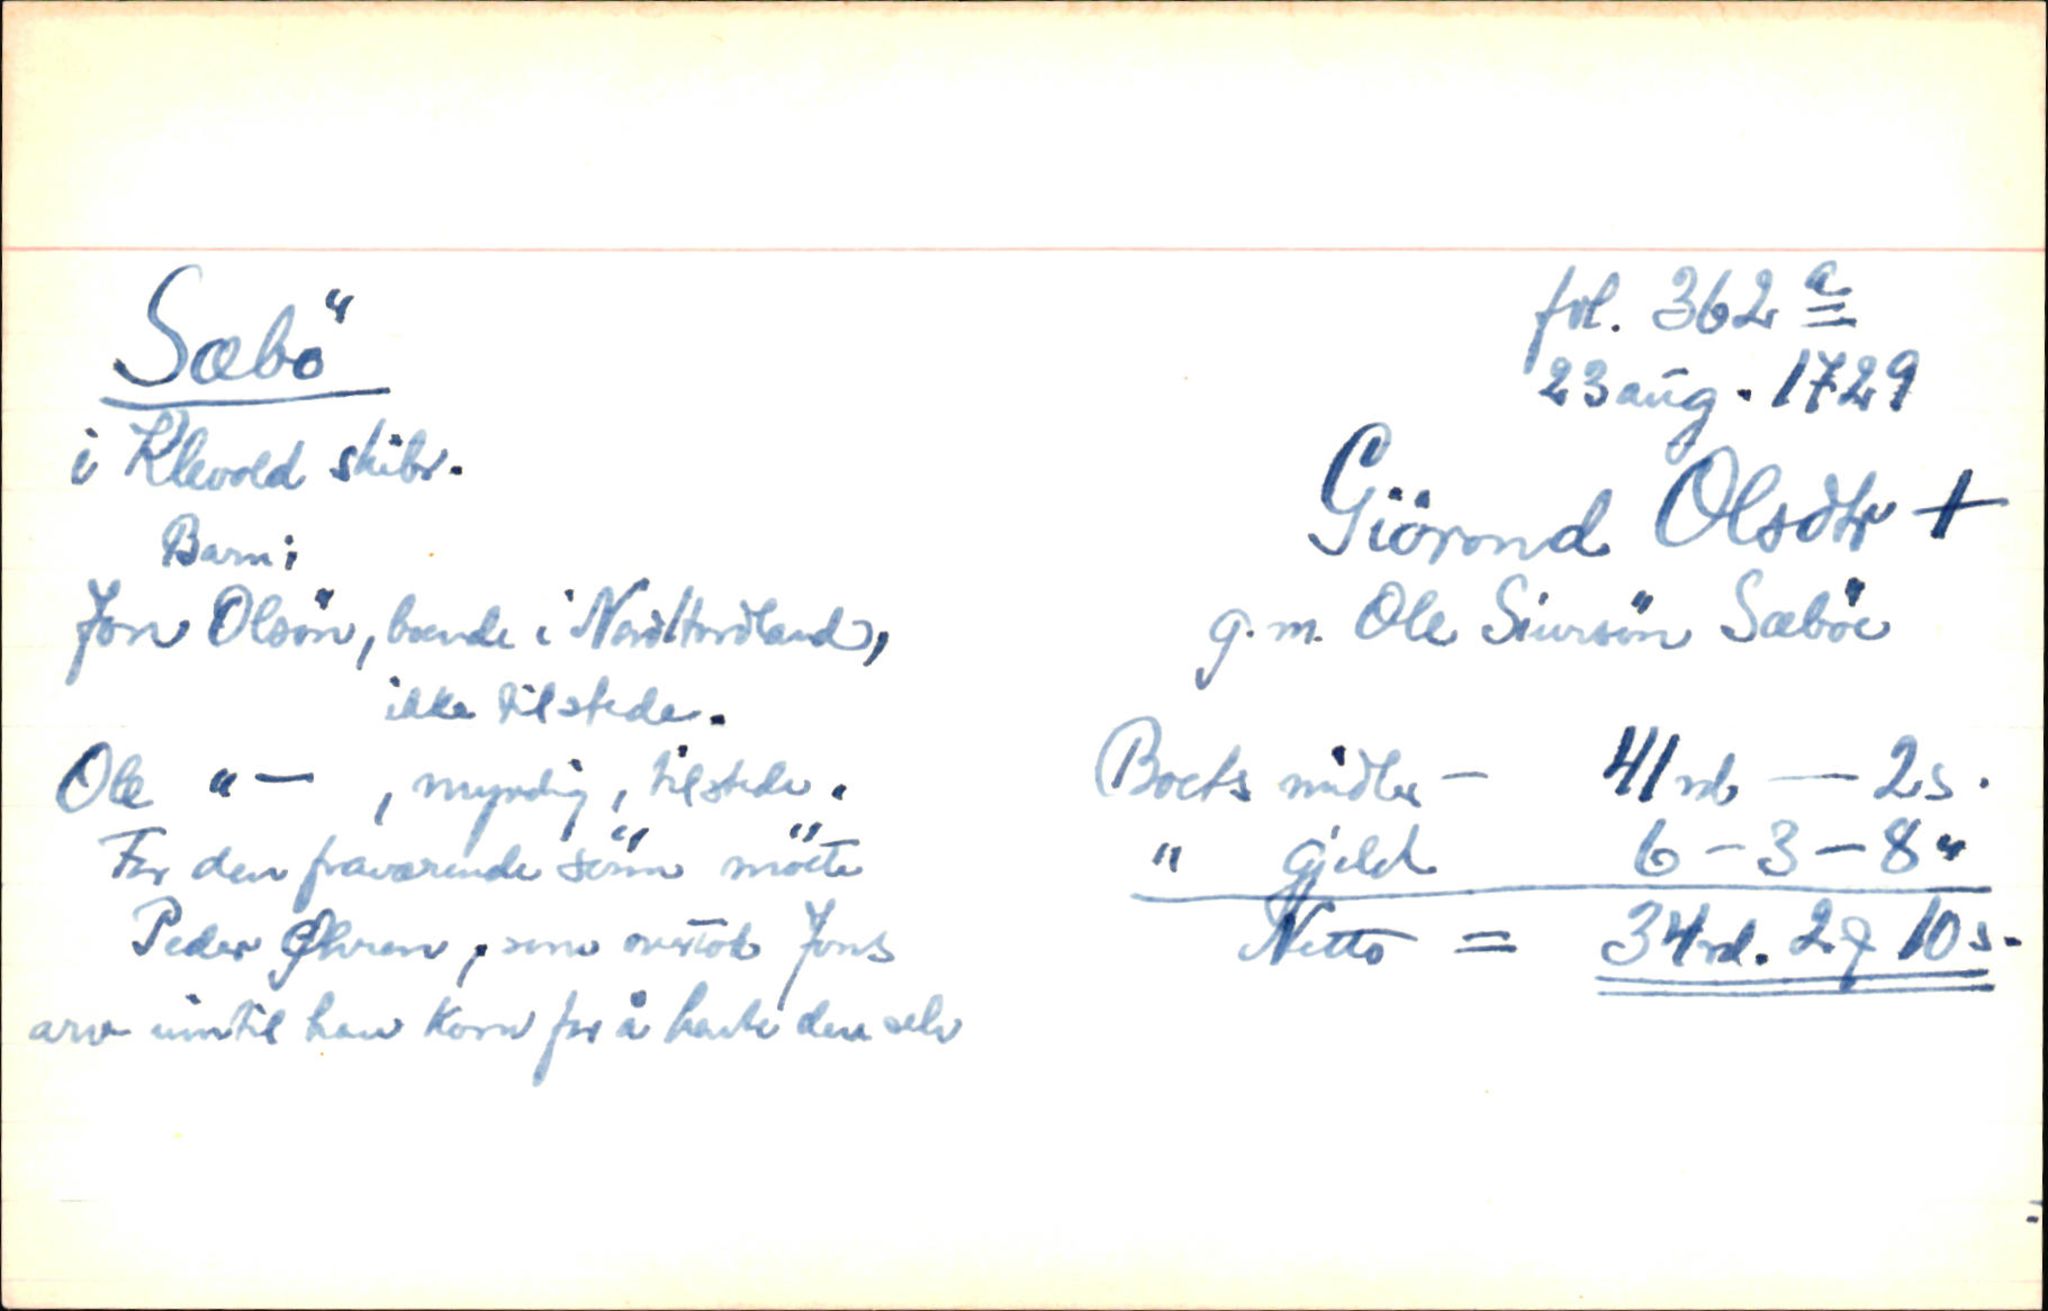 Sæbö
i Klevold skibr.
Barn:
Jon Olsön, boende i NordHordland,
ikke tilstede.
Ole " — , myndig, tilstede.
For den fraværende sönn mötte
Peder Øhren, som overtok Jons
arv inntil han kom for å hente den selv
fol. 362 a
23 aug. 1729
Giörond Olsdtr +
g.m. Ole Siursön Sæböe
Boets midler — 41 rd — 2 s.
" Gjeld 6 - 3 - 8 "
Netto = 34 rd. 2 q 10 s.